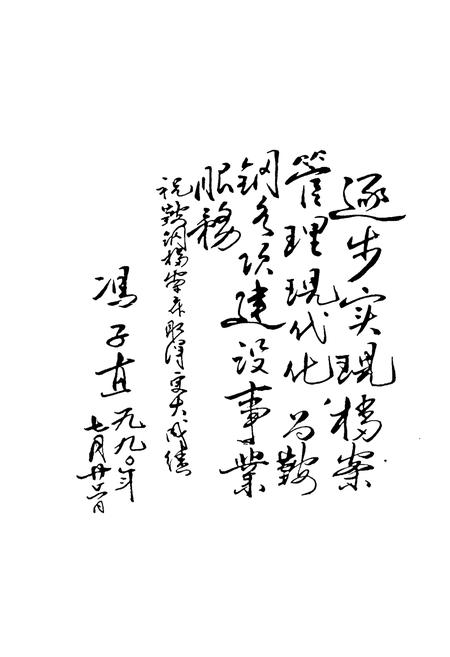 逐步实现档案
管理现代化为鞍
钢各项建设事业
服务
祝鞍钢档案库取得更大成绩
冯子直一九九〇年
七月廿六日